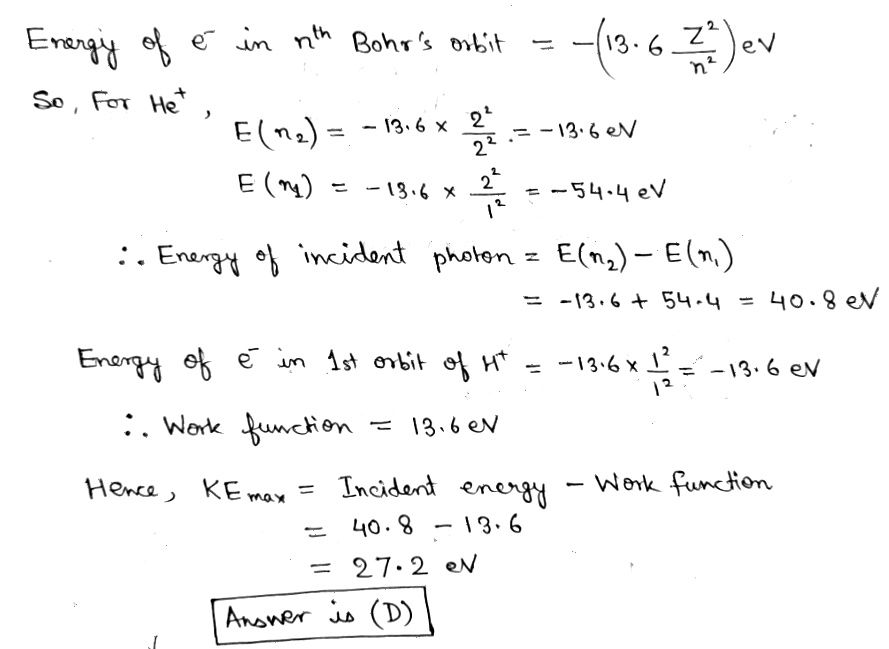 Energy of e⁻ in nᵗʰ Bohr's orbit = -(13.6 Z²/n²) eV
So, For He⁺,
E(n₂) = -13.6 × 2²/2² = -13.6 eV
E(n₁) = -13.6 × 2²/1² = -54.4 eV
∴ Energy of incident photon = E(n₂) - E(n₁)
= -13.6 + 54.4 = 40.8 eV
Energy of e⁻ in 1st orbit of H⁺ = -13.6 × 1²/1² = -13.6 eV
∴ Work function = 13.6 eV
Hence, KE max = Incident energy - Work function
= 40.8 - 13.6
= 27.2 eV
Answer is (D)